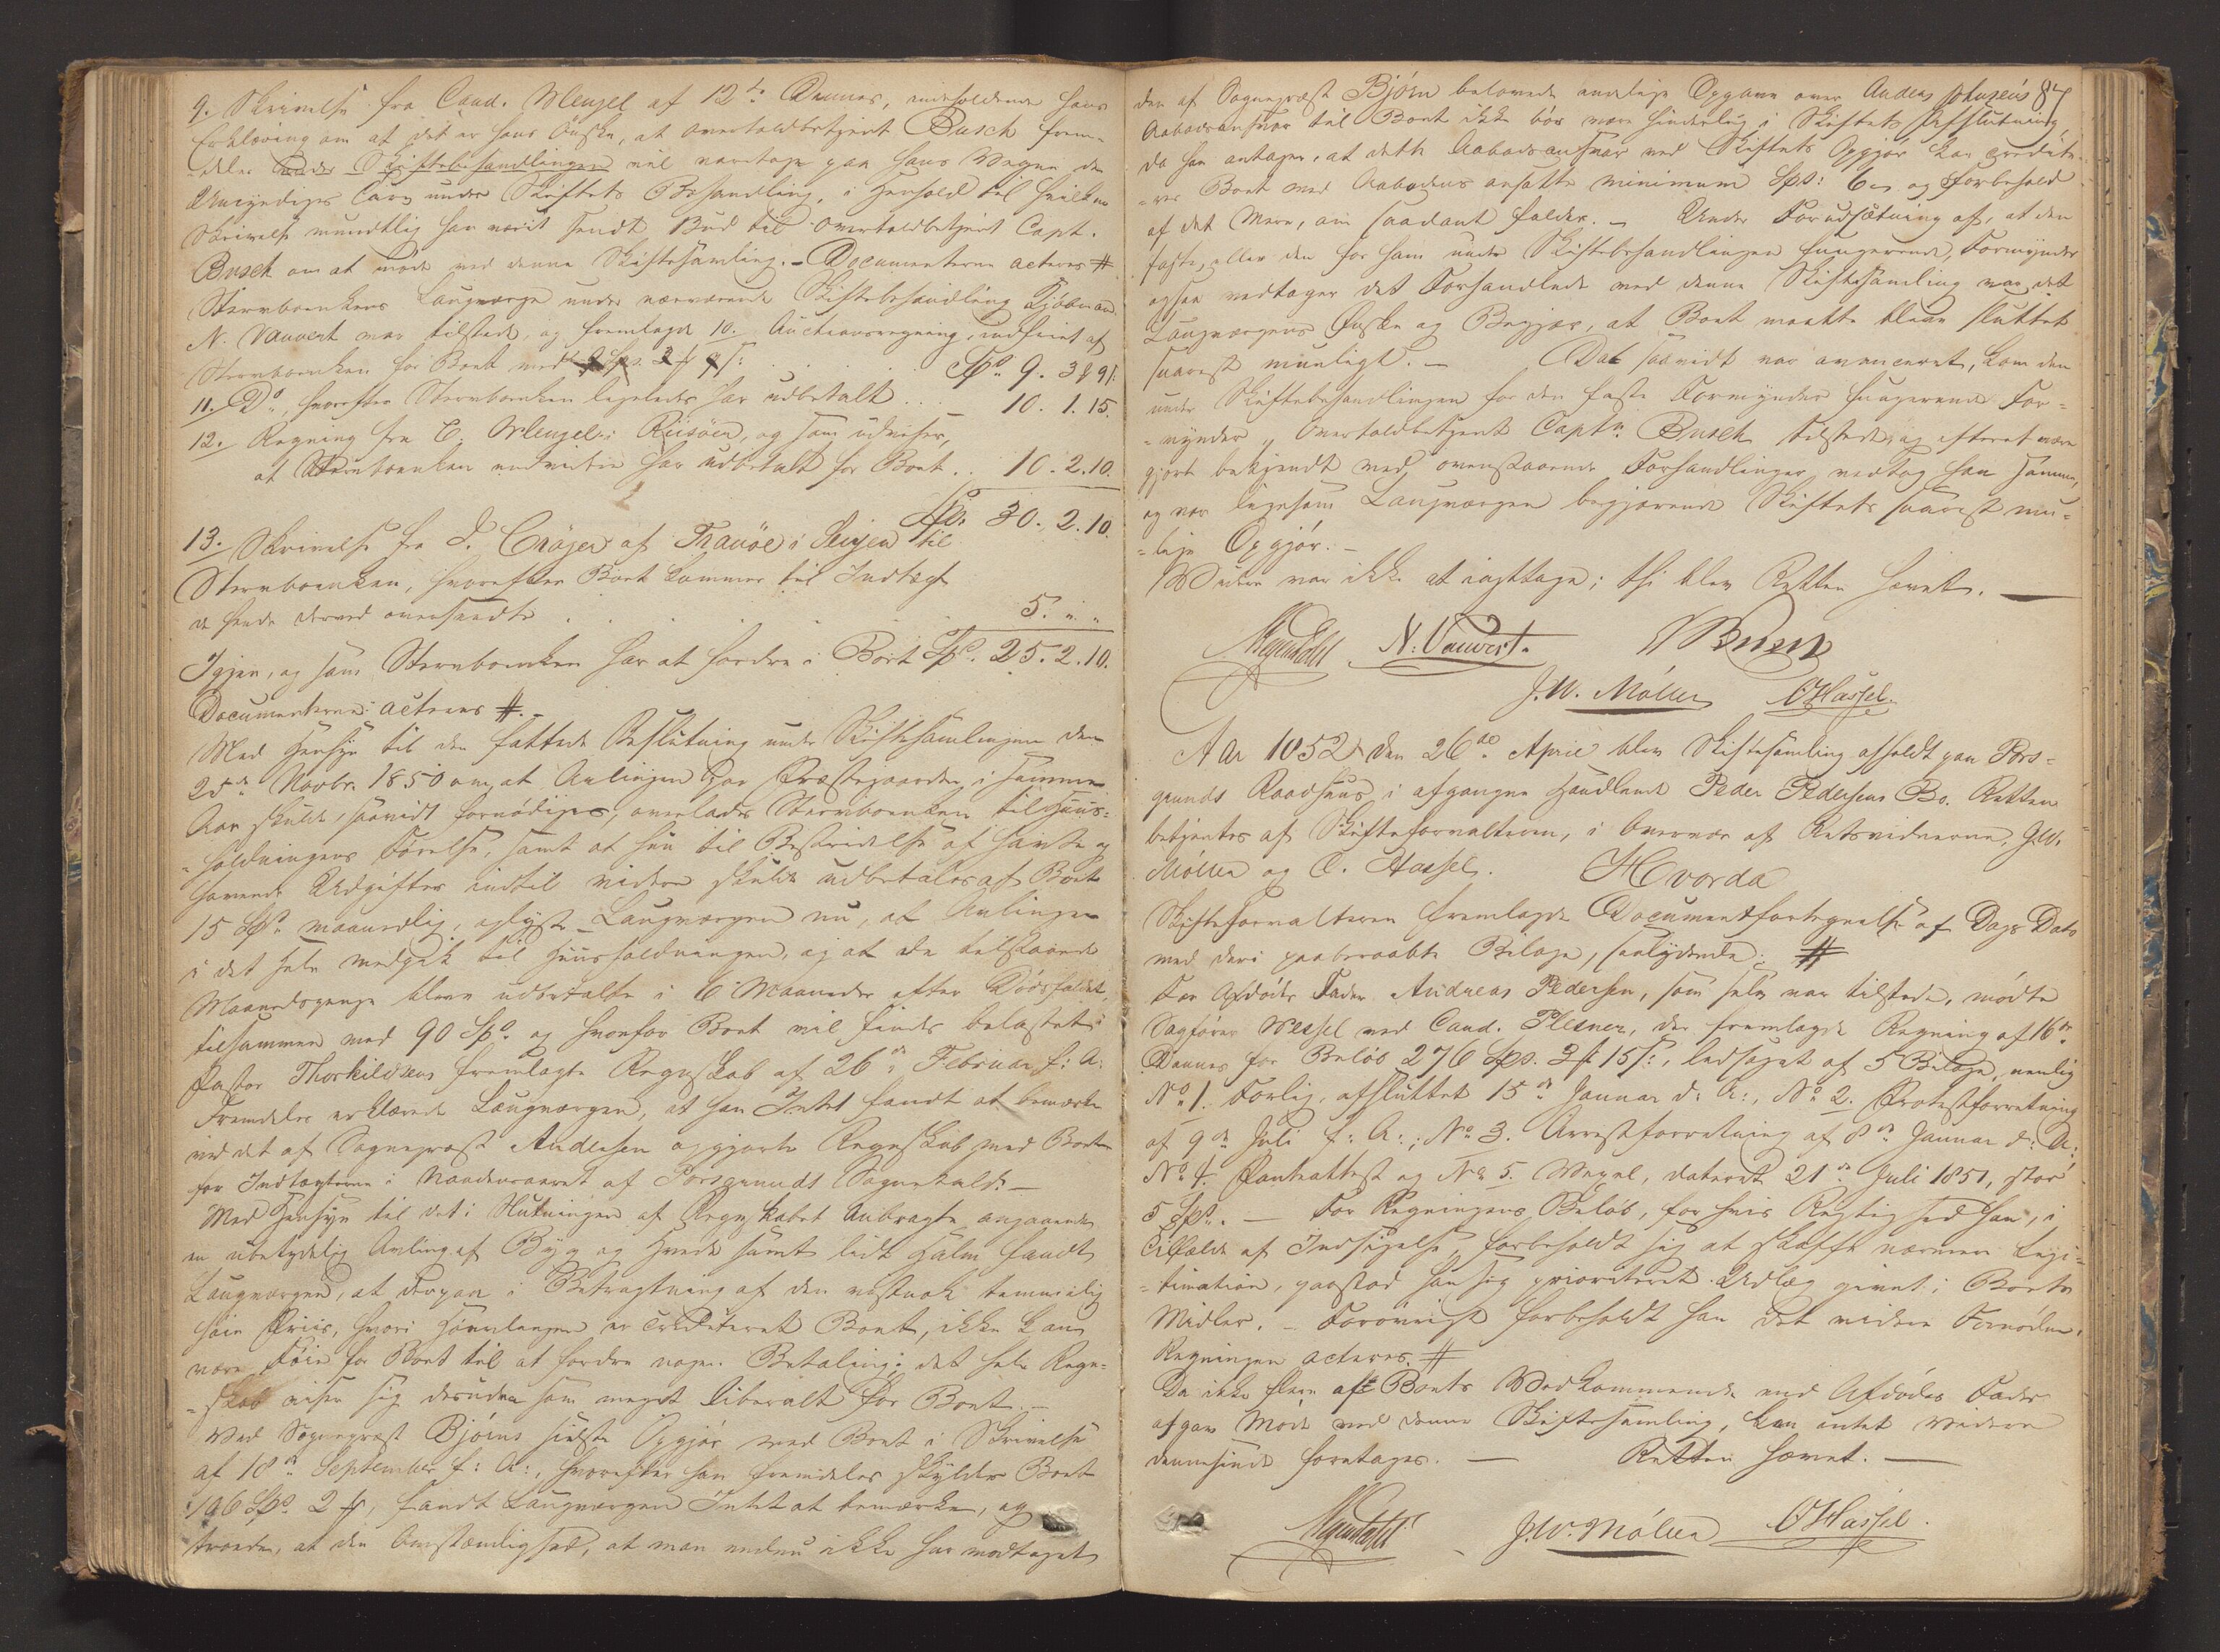 9. Skrivelse fra Cand. Wleugel af 12te Dennes, indeholdende hans
Erklæring om at det er hans Ønske, at Overtoldbetjent Busch frem-
-deles under Skiftebehandlingen vil varetage paa hans Vegne de
Umyndiges Tarv under Skiftets Behandling, i Henhold til hvilken
Skrivelse mundtlig har været sendt Bud til Overtoldbetjent Capt.
Busch om at møde ved denne Skiftesamling. - Documenterne acteres #
Stervboenkens Laugværge under nærværende Skiftebehandling Kjøbmand
N. Vauvert var tilstede, og fremlagde 10. Auctionsregning, indfriet af
Stervboenken for Boet med Spd. 9. 3 # 9 s:
11. Do, hvorefter Stervboenken ligeledes har udbetalt . . 10. 1. 15.
12. Regning fra C. Wleugel i Riisöen, og som udviser,
at Stervboenken endvidere har udbetalt for Boet . . 10. 2. 10.
Spd. 30. 2. 10.
13. Skrivelse fra J. Cröger af Tranöe i Senjen til
Stervboenken, hvorefter Boet kommer til Indtægt
de hende derved oversendte . . . . 5. " "
Igjen, og som Stervboenken har at fordre i Boet Spd. 25. 2. 10.
Documenterne acteres #. -
Med Hensyn til den fattede Beslutning under Skiftesamlingen den
25de Novbr. 1850 om at Avlingen paa Præstegaarden i samme
Aar skulde, saavidt fornødiges, overlades Stervboenken til Huus-
-holdningens Førelse, samt at hun til Bestridelse af hende
havende Udgifter indtil videre skulde udbetales af Boet
15 Spd. maanedlig, oplyste Laugværgen nu, at Avlingen
i det Hele medgik til Huusholdningen, og at de tilstaaede
Maanedspenge bleve udbetalte i 6 Maaneder efter Dødsfaldet,
tilsammen med 90 Spd. og hvorfor Boet vil findes belastet i
Pastor Thorkildsens fremlagte Regnskab af 26de Februar f: A:
Fremdeles erklærede Laugværgen, at han Intet fandt at bemærke
ved det af Sogneprest Andersen opgjorte Regnskab med Boet
for Indtægterne i Naadensaaret af Porsgrunds Sognekald. -
Med Hensyn til det i Slutningen af Regnskabet Anbragte angaaende
en ubetydelig Avling af Byg og Hvede samt lidt Halm fandt
Laugværgen, at derpaa i Betragtning af den vistnok temmelig
høie Priis, hvori Høavlingen er crediteret Boet, ikke kan
være Føie for Boet til at fordre nogen Betaling; det hele Regn-
-skab viser sig desuden som meget liberalt for Boet. -
Ved Sogneprest Bjørns sidste Opgjør med Boet i Skrivelse
af 18de September f: A:, hvorefter han fremdeles skylder Boet
196 Spd. 2 #, fandt Laugværgen Intet at bemærke, og
troede, at den Omstændighed, at man endnu ikke har modtaget
87
den af Sogneprest Bjørn belovede endelige Opgave over
Aabodsansvar til Boet ikke bør være hinderlig i Skiftets Afslutning
da han antager, at dette Aabodsansvar ved Skiftets Opgjør kan credite-
-res Boet med Aabodens ansatte minimum Spd: 6 " og Forbehold
af det Mere, om saadant falder. - Under Forudsætning af, at den
faste, eller den for ham under Skiftebehandlingen fungerende, Formynder
ogsaa vedtager det Forhandlede ved denne Skiftesamling var det
Laugværgens Ønske og Begjær, at Boet maatte blive sluttet
snarest muligt. - Dat saavidt var avanceret, kom den
under Skiftebehandlingen for den faste Formynder fungerende For-
-mynder, Overtoldbetjent Captn. Busch tilstede, og efterat være
gjort bekjendt med ovenstaaende Forhandlinger vedtog han samme,
og var ligesom Laugværgen begjærende Skiftets snarest mu-
-lige Opgjør. -
Videre var ikke at iagttage; thi blev Retten hævet. -
N. Vauvert. Busch
J.W. Möller O Hassel.
Aar 1852 den 26de April blev Skiftesamling afholdt paa Pors-
grunds Raadhuus i afgangne Handlende Peder Pedersens Bo. Retten
betjentes af Skifteforvalteren, i Overvær af Retsvidnerne, J.W.
Möller og O. Hassel. Hvorda
Skifteforvalteren fremlagde Documentfortegnelse af Dags Dato
med deri paaberaabte Bilage, saalydende: #
For Afdødes Fader Andreas Pedersen, som selv var tilstede, mødte
Sagfører Wessel ved Cand. Plesner, der fremlagde Regning af 16de
Dennes for Beløb 276 Spd. 3 # 15 s:, ledsaget af 5 Bilage, nemlig
No 1. Forlig, afsluttet 15de Januar d: A:, No 2. Protestforretning
af 9de Juli f: A:; No 3. Arrestforretning af 8de Januar d: A:
No 4. Panteattest og No 5. Vexel, dateret 21de Juli 1851, stor
5 Spd. - For Regningens Beløb, for hvis Rigtighed han, i
Tilfælde af Indsigelse, forbeholdt sig at skaffe nærmere Legi-
-timation, paastod han sig prioriteret Udlæg givet i Boets
Midler. - Forøvrigt forbeholdt han det videre Fornødne.
Regningen acteres. #
Da ikke flere af Boets Vedkommende end Afdødes Fader
afgav Møde ved denne Skiftesamling, kan intet videre
dennesinde foretages. - Retten hævet. -
J.W. Möller O Hassel.